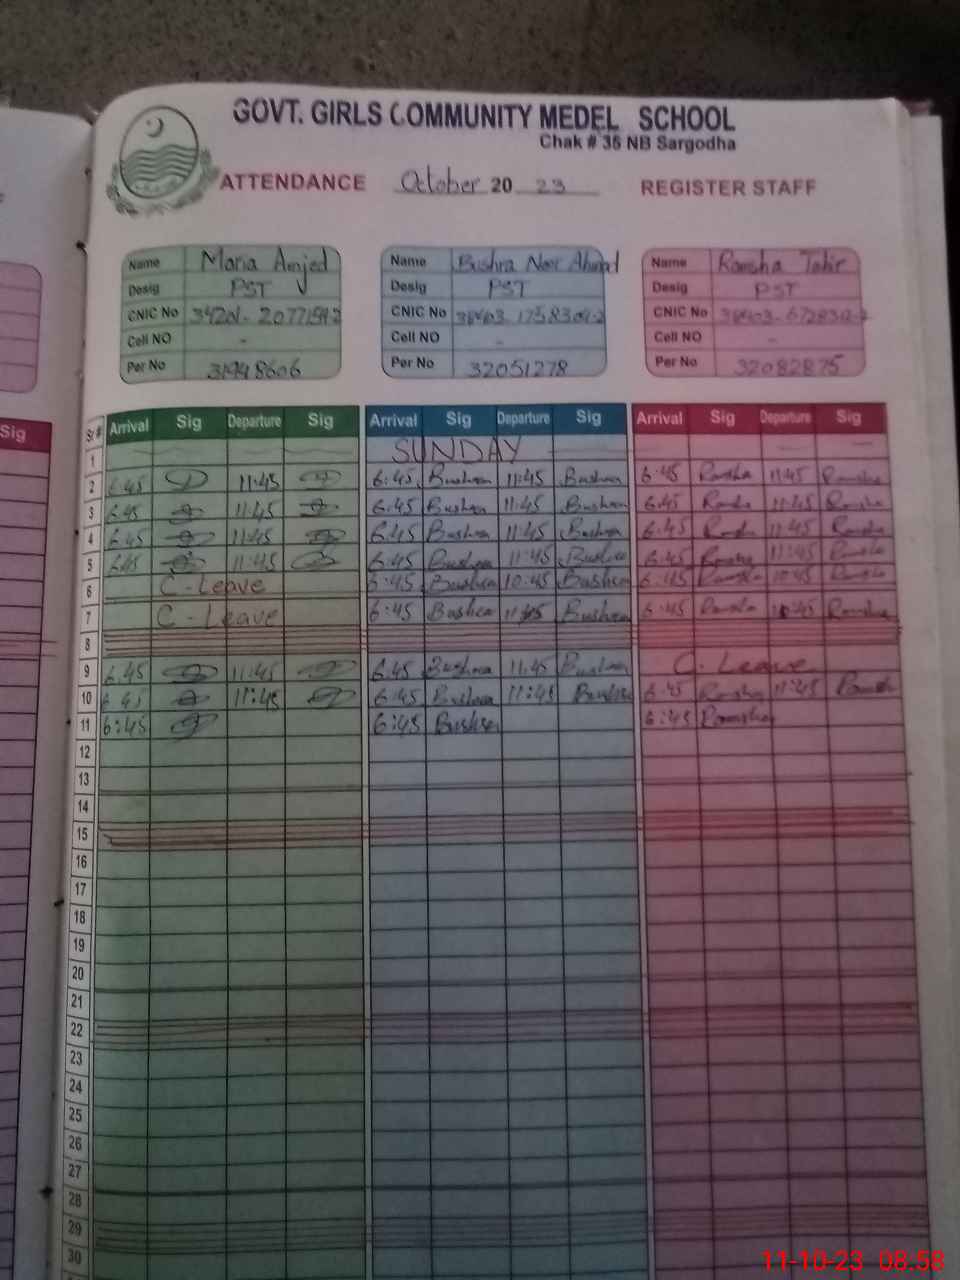 GOVT. GIRLS COMMUNITY MEDEL SCHOOL
Chak # 36 NB Sargodha
ATTENDANCE October 20 23 REGISTER STAFF
Name Maria Amjed Name Bushra Noor Ahmad Name Ramsha Tahir
Desig PST Desig PST Desig PST
CNIC No CNIC No CNIC No
Cell NO - Cell NO - Cell NO -
Per No 31948606 Per No 32051278 Per No 32082875
Sig Sr # Arrival Sig Departure Sig Arrival Sig Departure Sig Arrival Sig Departure Sig
1 SUNDAY
2 6:45 11:45 6:45 Bushra 11:45 Bushra 6:45 Ramsha 11:45 Ramsha
3 6:45 11:45 6:45 Bushra 11:45 Bushra 6:45 Ramsha 11:45 Ramsha
4 6:45 11:45 6:45 Bushra 11:45 Bushra 6:45 Ramsha 11:45 Ramsha
5 6:45 11:45 6:45 Bushra 11:45 Bushra 6:45 Ramsha 11:45 Ramsha
6 C-Leave 6:45 Bushra 10:45 Bushra 6:45 Ramsha 10:45 Ramsha
7 C-Leave 6:45 Bushra 11:45 Bushra 6:45 Ramsha Ramsha
8
9 6:45 11:45 6:45 Bushra 11:45 Bushra C-Leave
10 6:45 11:45 6:45 Bushra 11:45 Bushra 6:45 Ramsha 11:45 Ramsha
11 6:45 6:45 Bushra 6:45 Ramsha
12
13
14
15
16
17
18
19
20
21
22
23
24
25
26
27
28
29
30
11-10-23 08:58